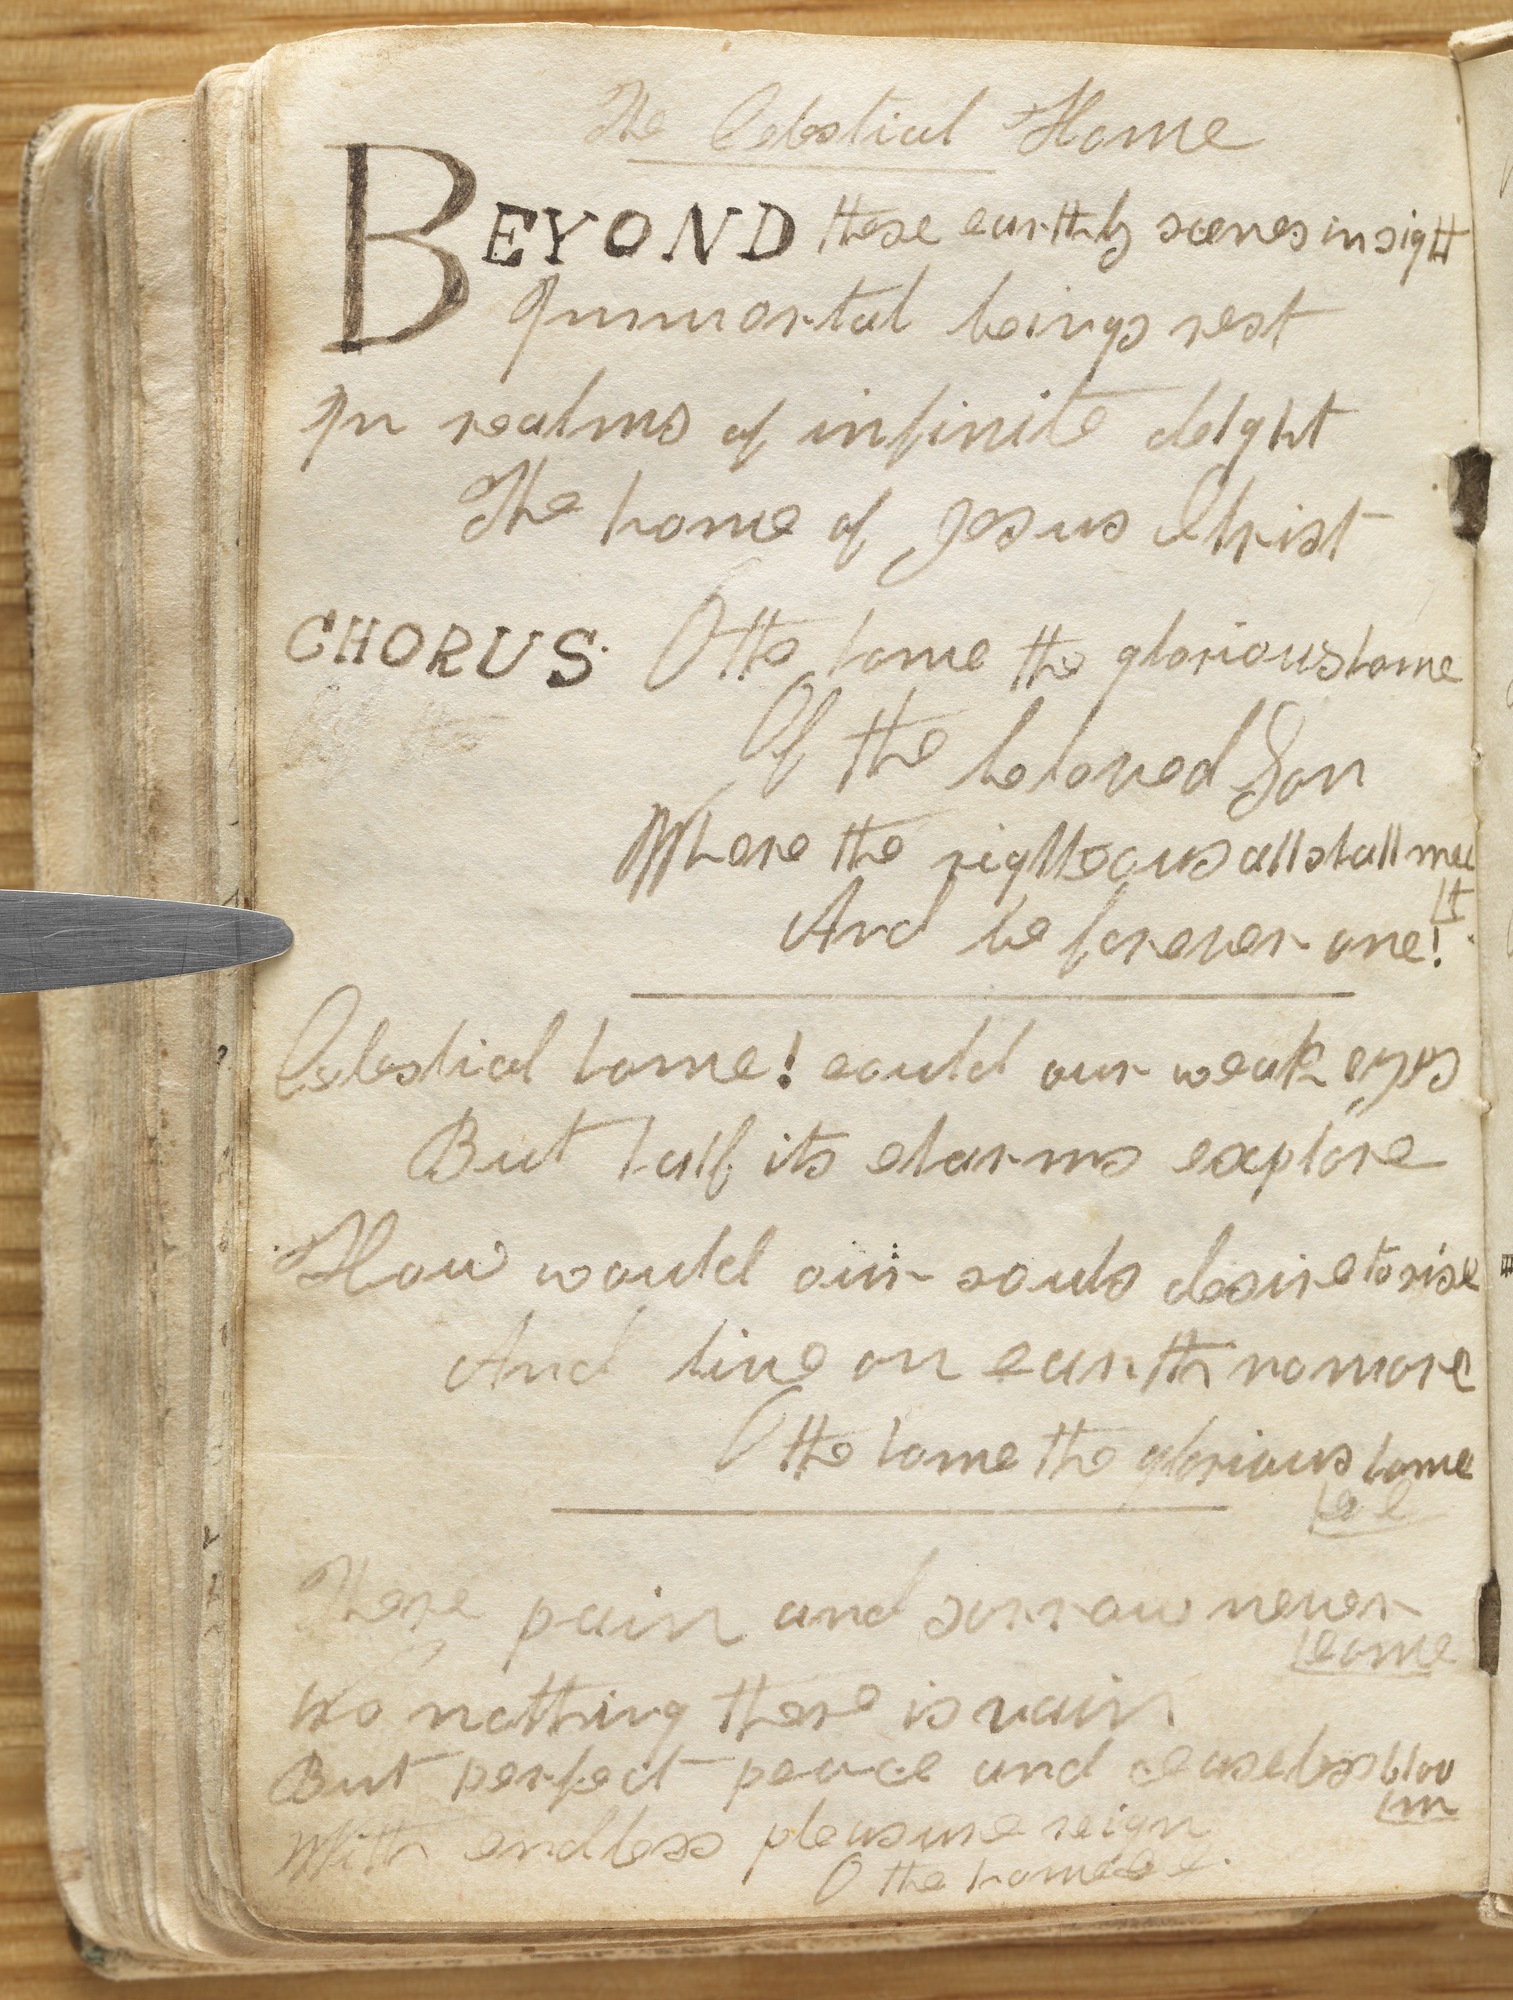 The Celestial Home
BEYOND these earthly scenes in sight
Immortal beings rest
In realms of infinite delght
The home of Jesus Christ
CHORUS. O the home the glorious home
Of the beloved Son
Where the righteous all shall mee
t
And be forever one!
Celestial home! could our weak eyes
But half its charms explore
How would our souls desire to rise
And live on earth no more
O the home the glorious home
&c
There pain and sorrow never
come
No nothing there is vain
But perfect peace and ceaseless bloo
m
With endless pleasure reign
O the home &c.